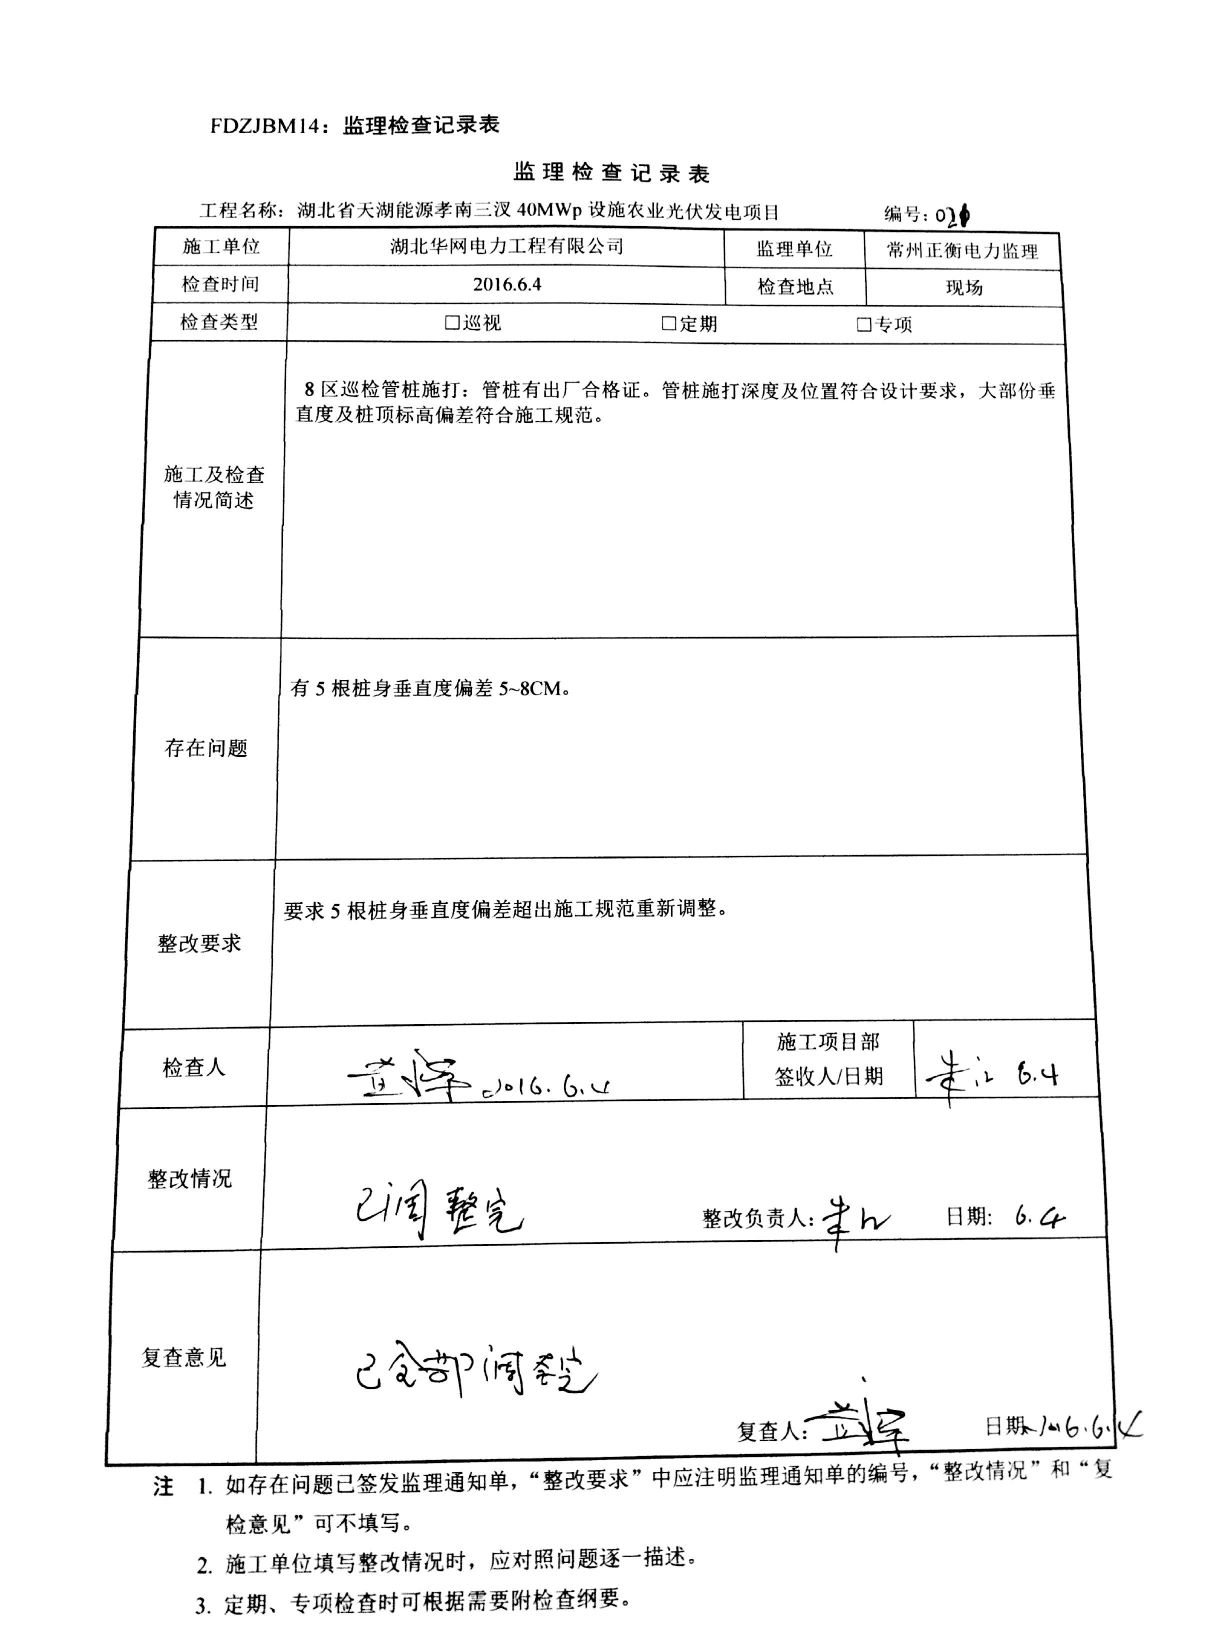 FDZJBM14：监理检查记录表
监理检查记录表
工程名称：湖北省天湖能源孝南三汊 40MWp 设施农业光伏发电项目 编号：
施工单位 湖北华网电力工程有限公司 监理单位 常州正衡电力监理
检查时间 2016.6.4 检查地点 现场
检查类型 □巡视 □定期 □专项
8 区巡检管桩施打：管桩有出厂合格证。管桩施打深度及位置符合设计要求，大部份垂
直度及桩顶标高偏差符合施工规范。
施工及检查
情况简述
有 5 根桩身垂直度偏差 5~8CM。
存在问题
要求 5 根桩身垂直度偏差超出施工规范重新调整。
整改要求
检查人 2016.6.4
施工项目部
签收人/日期 朱江 6.4
整改情况
已调整完 整改负责人: 朱江 日期: 6.4
复查意见
已全部调整完
复查人: 日期 2016.6.4
注 1. 如存在问题已签发监理通知单，“整改要求”中应注明监理通知单的编号，“整改情况”和“复
检意见”可不填写。
2. 施工单位填写整改情况时，应对照问题逐一描述。
3. 定期、专项检查时可根据需要附检查纲要。